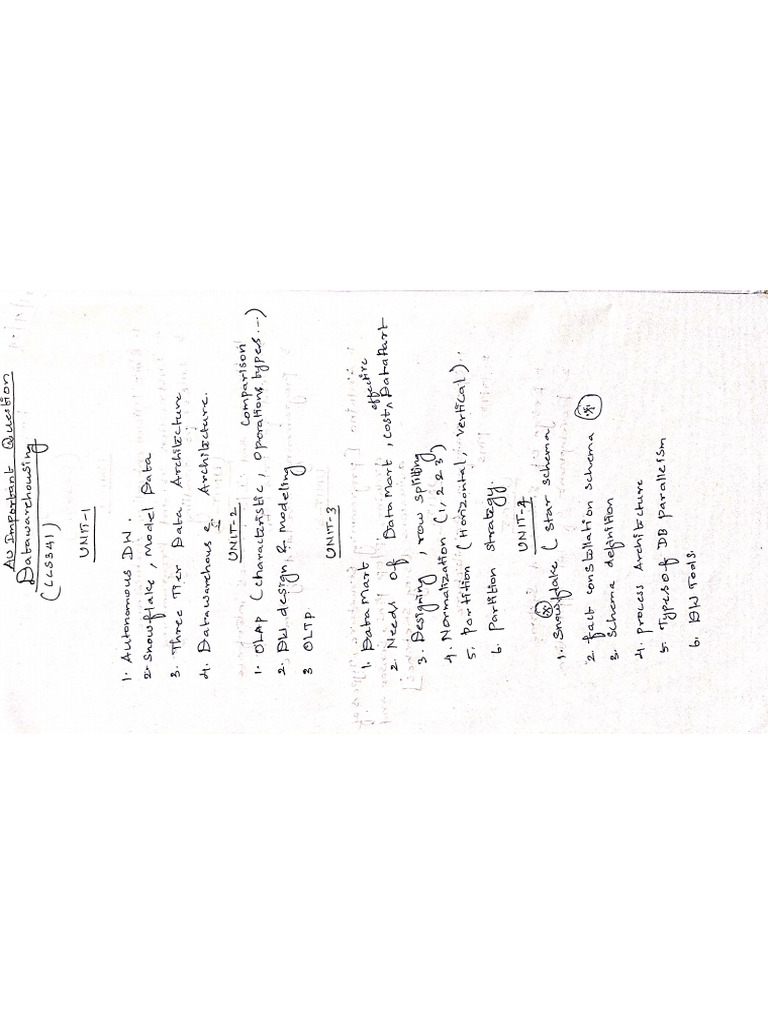 AU Important Question
Datawarehousing
(CCS341)
UNIT-1
1. Autonomous DW.
2. Snowflake, Model Data
3. Three Tier Data Architecture
4. Datawarehouse Architecture.
UNIT-2
1. OLAP (characteristic, operations types...) comparison
2. DW design & modeling
3 OLTP
UNIT-3
1. Data Mart
2. Needs of Data Mart, cost effective, Data Part
3. Designing, row spliting
4. Normalization (1, 2 & 3)
5. Partition (Horizontal, vertical).
6. Partition strategy.
UNIT-4
1. Snowflake ( star schema
2. fact constellation schema
3. Schema definition
4. process Architecture
5. Types of DB paralleism
6. DW Tools.